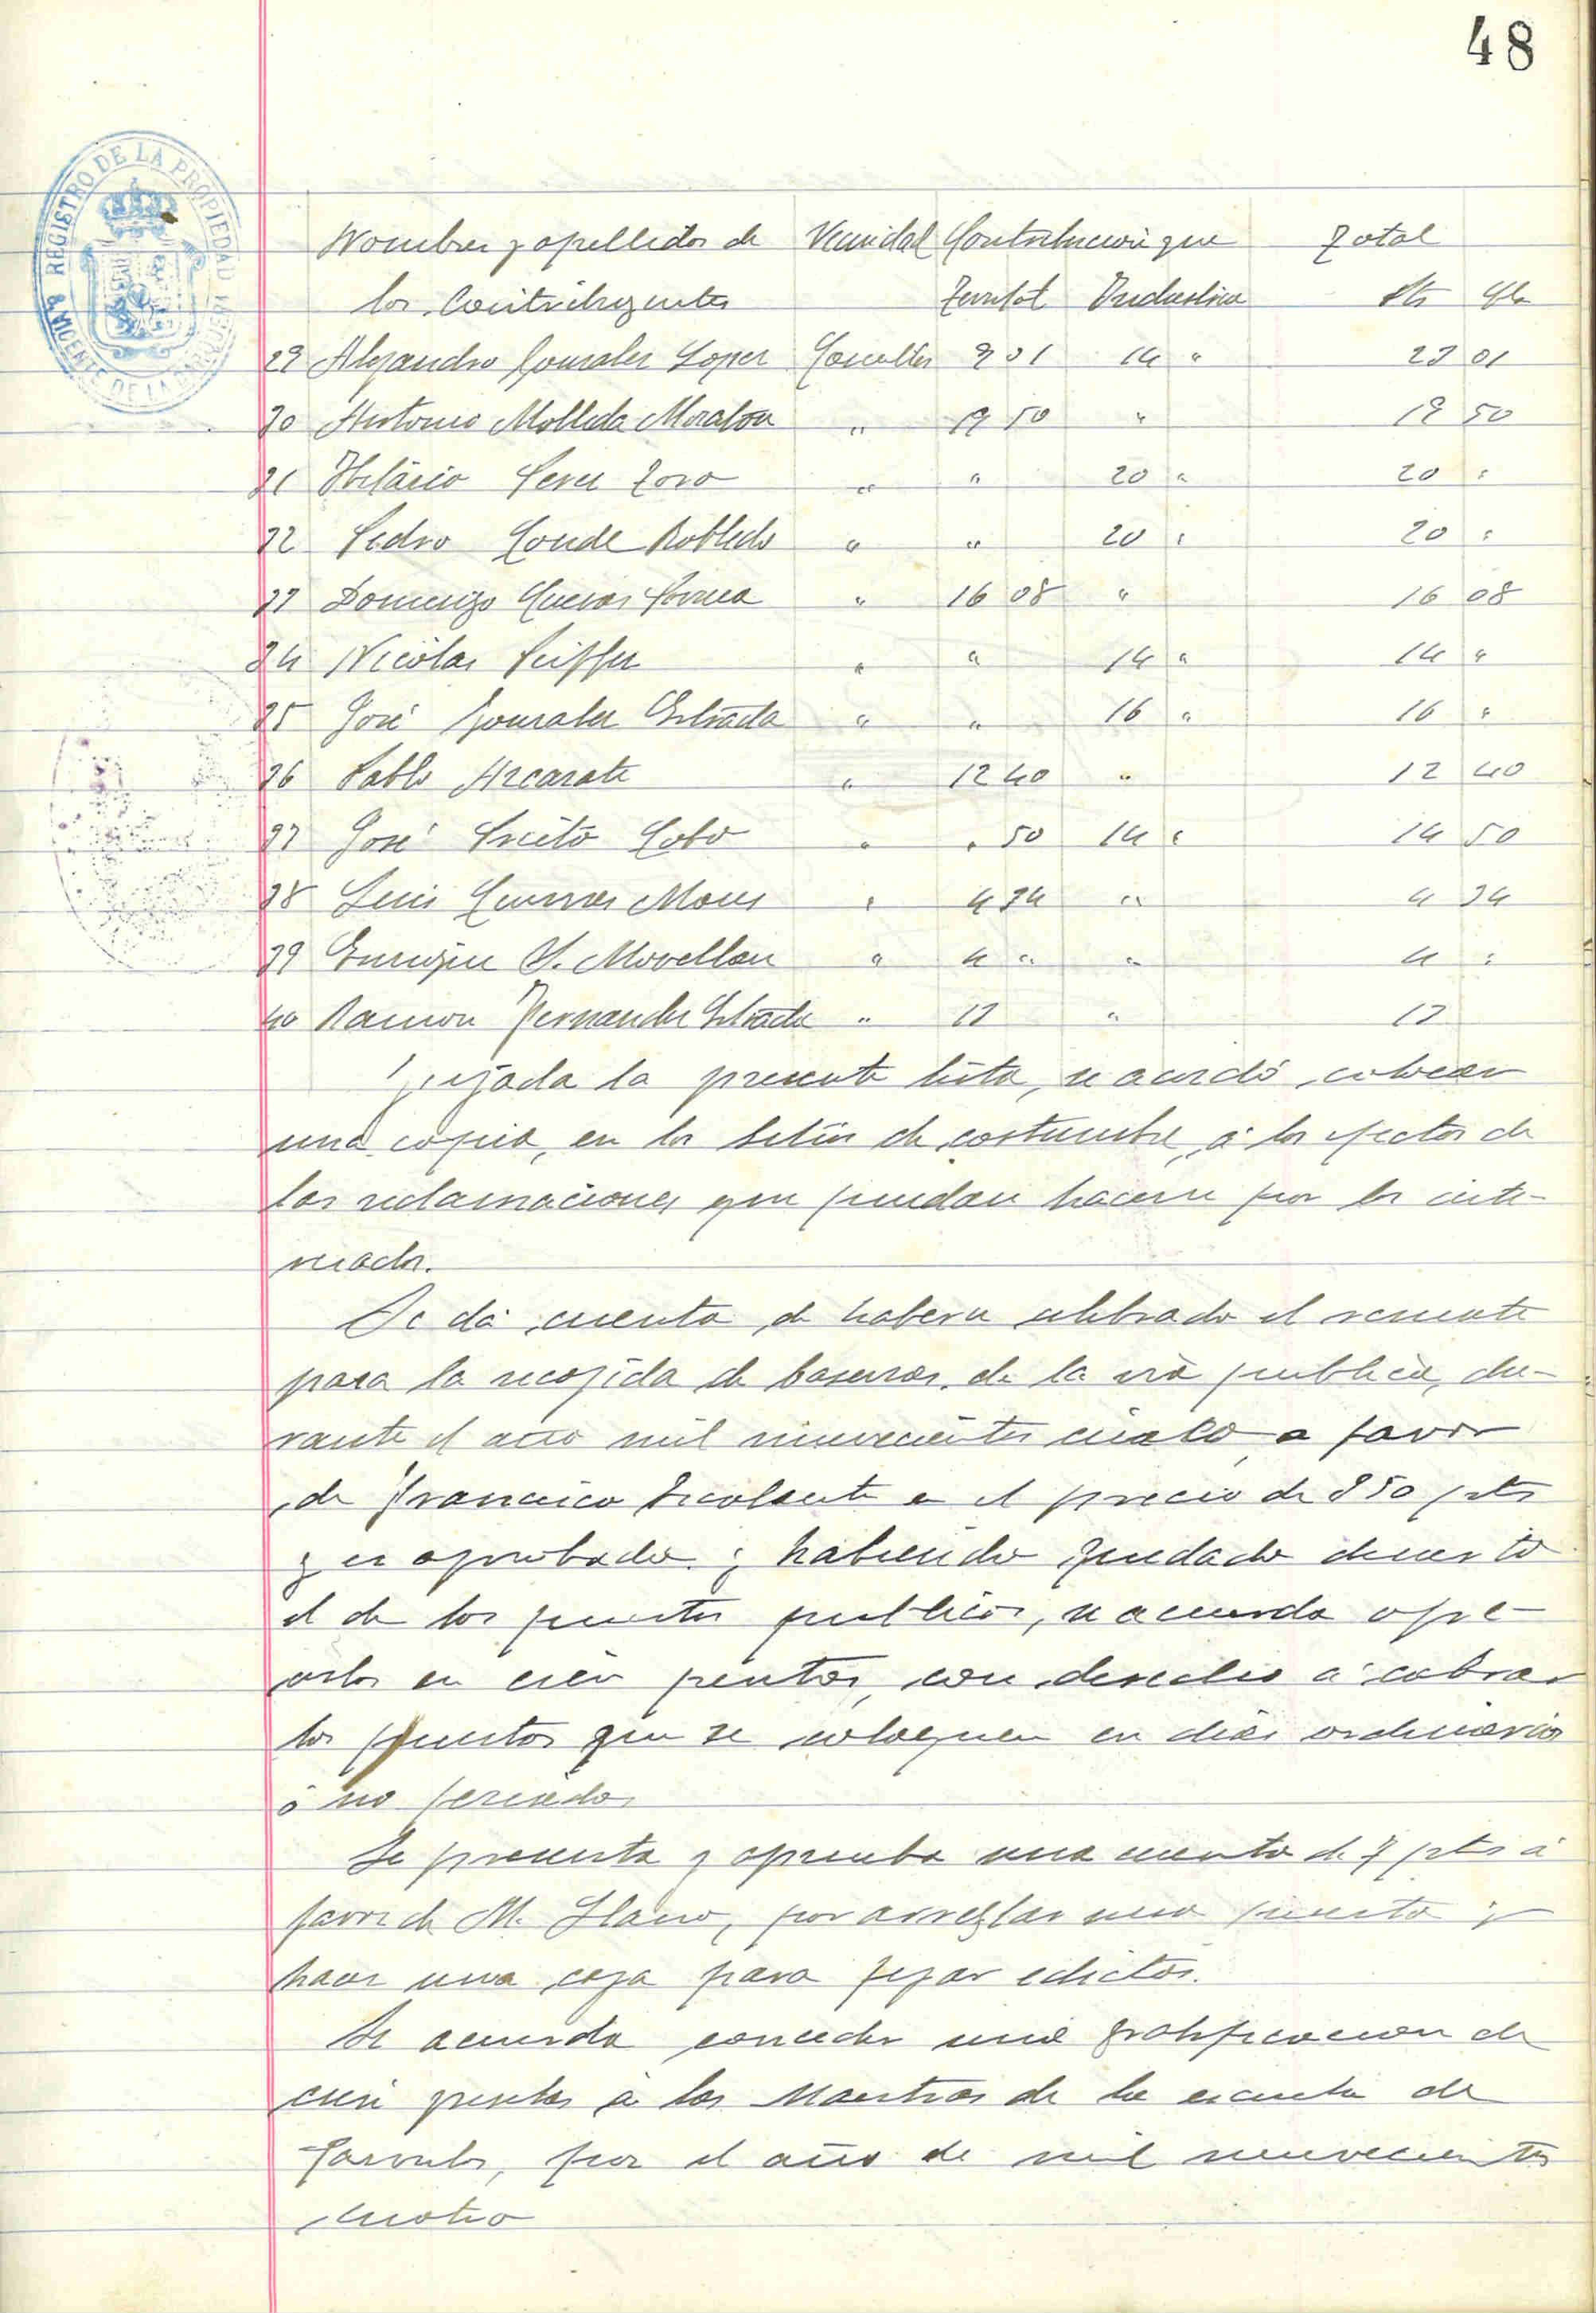 48
REGISTRO DE LA PROPIEDAD
Nombres y apellidos de Vecindad Contribucion que Total
los Contribuyentes Territol Industrial Pts Cts
29 Alejandro Gonzalez Lopez Comillas 9 01 14 " 23 01
30 Antonio Molleda Moralon " 19 50 " 19 50
31 Hilário Perez Toro " " 20 " 20 "
32 Pedro Conde Robledo " " 20 " 20 "
33 Domingo Cuevas " 16 08 " 16 08
34 Nicolas " " 14 " 14 "
35 José Gonzalez Estrada " " 16 " 16 "
36 Pablo Azcarate " 12 40 " 12 40
37 José Prieto Cobo " " 50 14 " 14 50
38 Luis " 4 34 " 4 34
39 Enrique S. Movellan " 4 " " 4 "
40 Ramon Fernandez Estrada " 13 " 13
la presente lista, se acordó, colocar
una copia, en los sitios de costumbre, á los efectos de
las reclamaciones que puedan hacerse por los inte-
resados.
Se dá cuenta de haberse celebrado el remate
para la recojida de basuras de la via publica, du-
rante el año mil novecientos cinco a favor
de Francisco en el precio de 850 pts
y es aprobado; habiendo quedado desierto
el de los puestos publicos, se acuerda
en cien pesetas, con derecho á cobrar
los puestos que se coloquen en dias ordinarios
ó no feriados
Se presenta y aprueba una cuenta de 7 pts á
favor de M. Llano, por arreglar una puerta y
hacer una caja para fijar edictos.
Se acuerda conceder una gratificacion de
cien pesetas á las Maestras de la escuela de
Parvulos, por el año de mil novecientos
cuatro